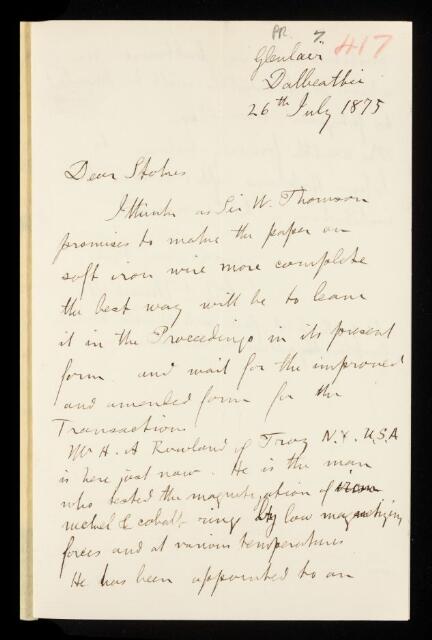 PR. 7.
417
Glenlair
Dalbeattie
26th July 1875
Dear Stokes
I think as Sir W. Thomson
promises to make the paper on
soft iron wire more complete
the best way will be to leave
it in the Proceedings in its present
form and wait for the improved
and amended form for the
Transactions
Mr H. A Rowland of Troy N.Y. U.S.A
is here just now. He is the man
who tested the magnetization of
nickel & cobalt rings by low magnetizing
forces and at various temperatures
He has been appointed to an